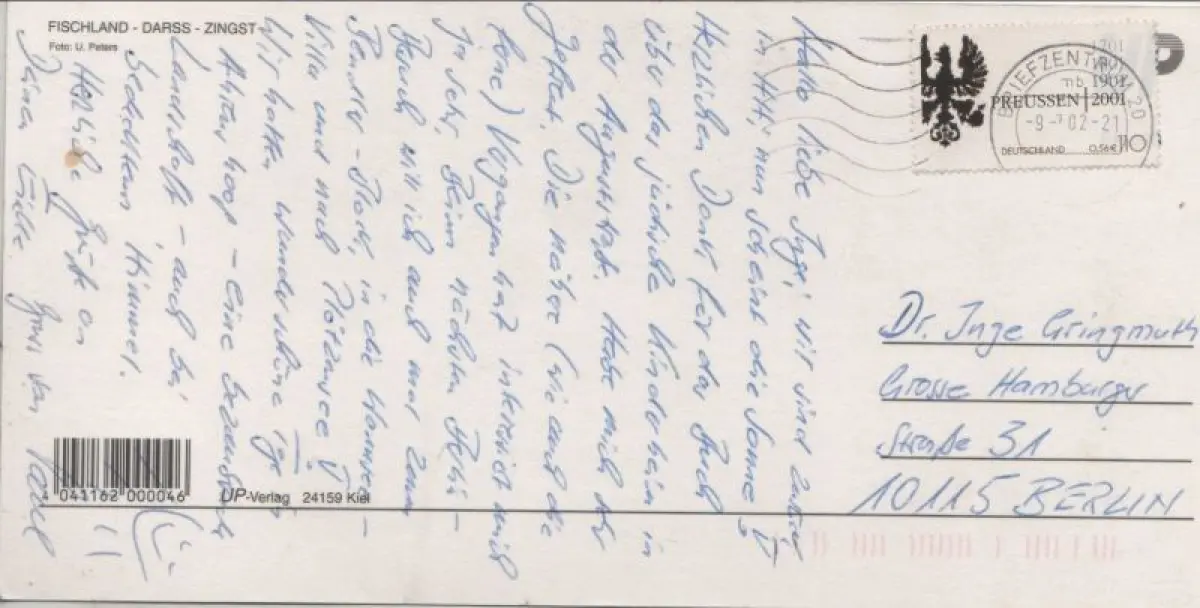 FISCHLAND - DARSS - ZINGST
Foto: U. Peters
Hallo liebe Inge, wir sind zurück
in Hilf, nun scheint die Sonne
Herzlichen Dank für das Buch
über das jüdische Kinderheim in
der Auguststr. Habe mich sehr
gefreut. Die nähere (wie auch die
ferne) Vergangenheit interessiert mich
ja sehr. Beim nächsten Berlin-
Besuch will ich auch mal zum
in die Wannsee-
Villa und nach Plötzensee
Wir hatten wunderschöne Tage
Ahrenshoop - eine bezaubernde
Landschaft - auch bei
bedecktem Himmel.
Herzliche Grüße an
Deine
Gruß von
4 041162 000046
UP-Verlag 24159 Kiel
1701
1901
PREUSSEN 2001
DEUTSCHLAND 0,56€ 110
BRIEFZENTRUM 20
mb
-9-7 02-21
Dr. Inge Gringmuth
Grosse Hamburger
Straße 31
10115 BERLIN